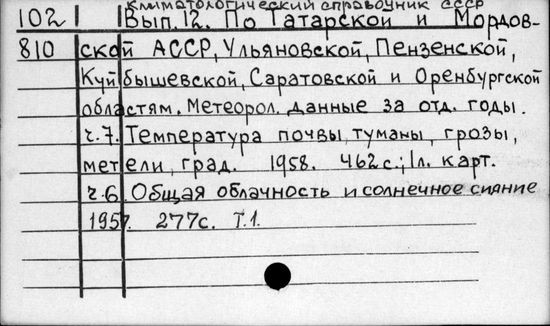 Климатологический справочник СССР
102 Вып. 12. По Татарской и Мордов-
810 ской АССР, Ульяновской, Пензенской,
Куйбышевской, Саратовской и Оренбургской
областям. Метеорол. данные за отд. годы.
ч.7. Температура почвы, туманы, грозы,
метели, град. 1958. 462с.; 1л. карт.
ч.6. Общая облачность и солнечное сияние
1957. 277с. Т.1.